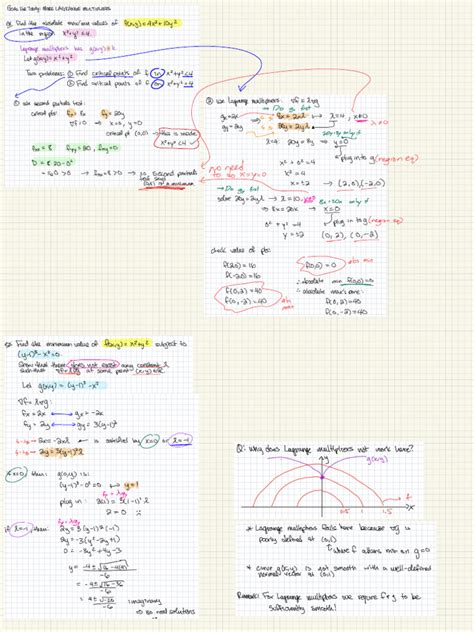 Goal for Today: More Lagrange Multipliers
Ex. Find the absolute max/min values of f(x,y)=4x²+10y²
in the region x²+y² ≤ 4.
Lagrange multipliers has g(x,y)=k
Let g(x,y)=x²+y²
Two problems: ① Find critical points of f in x²+y²<4
② Find critical points of f on x²+y²=4
① Use second partials test:
critical pt: fx=8x fy=20y
∇f=0 => x=0, y=0
critical pt (0,0) → this is inside x²+y²<4
fxx=8 fyy=20 fxy=0
D = 8·20-0²
=160>0 → fxx=8>0 → so, second partials
test says
(0,0) is a minimum
② Use Lagrange multipliers: ∇f=λ∇g
→ Do fx first
gx=2x
8x=2xλ → λ=4, x≠0
gy=2y
20y=2yλ
λ≠0
λ=4: 20y=8y only if
y=0
plug in to g (region eq)
x²+0²=4
x²=4
x=±2 → (2,0),(-2,0)
no need
to do x=y=0
→ Do fy first
solve 20y=2yλ → λ=10,
8x=20x only if
→ 8x=20x → x=0
plug in to g (region eq)
0²+y²=4
y=±2
(0,2), (0,-2)
check value of pts:
f(2,0)=16
f(-2,0)=16
f(0,2)=40
f(0,-2)=40
abs max
f(0,0)=0
abs min
∴ absolute min f(0,0)=0
∴ absolute max's are:
f(0,2)=40
f(0,-2)=40
Ex. Find the minimum value of f(x,y)=x²+y² subject to
(y-1)³-x²=0.
Show that there does not exist any constant λ
such that ∇f=λ∇g at some point (x,y).
Let g(x,y)=(y-1)³-x²
∇f=λ∇g:
fx=2x gx=-2x
fy=2y gy=3(y-1)²
2x=-2xλ ← is satisfied by x=0 or λ=-1
2y=3(y-1)²λ
If x=0 then: g(0,y) is:
(y-1)³-0²=0 → y=1
fy=λgy
plug in: 2(1)=3(1-1)²λ
2=0
If λ=-1 then:
fy=λgy
2y=-3(y-1)²
2y=-3(y²-2y+1)
0=-3y²+4y-3
y=
imaginary
so no real solutions
Q: Why does Lagrange multipliers not work here?
y
g(x,y)
f
x
0.5 1 1.5
* Lagrange multipliers fails here because ∇g is
poorly defined at (0,1)
↳ where f attains min on g=0
* curve g(x,y) is not smooth with a well-defined
normal vector at (0,1)
Remark: For Lagrange multipliers we require f, g to be
sufficiently smooth!